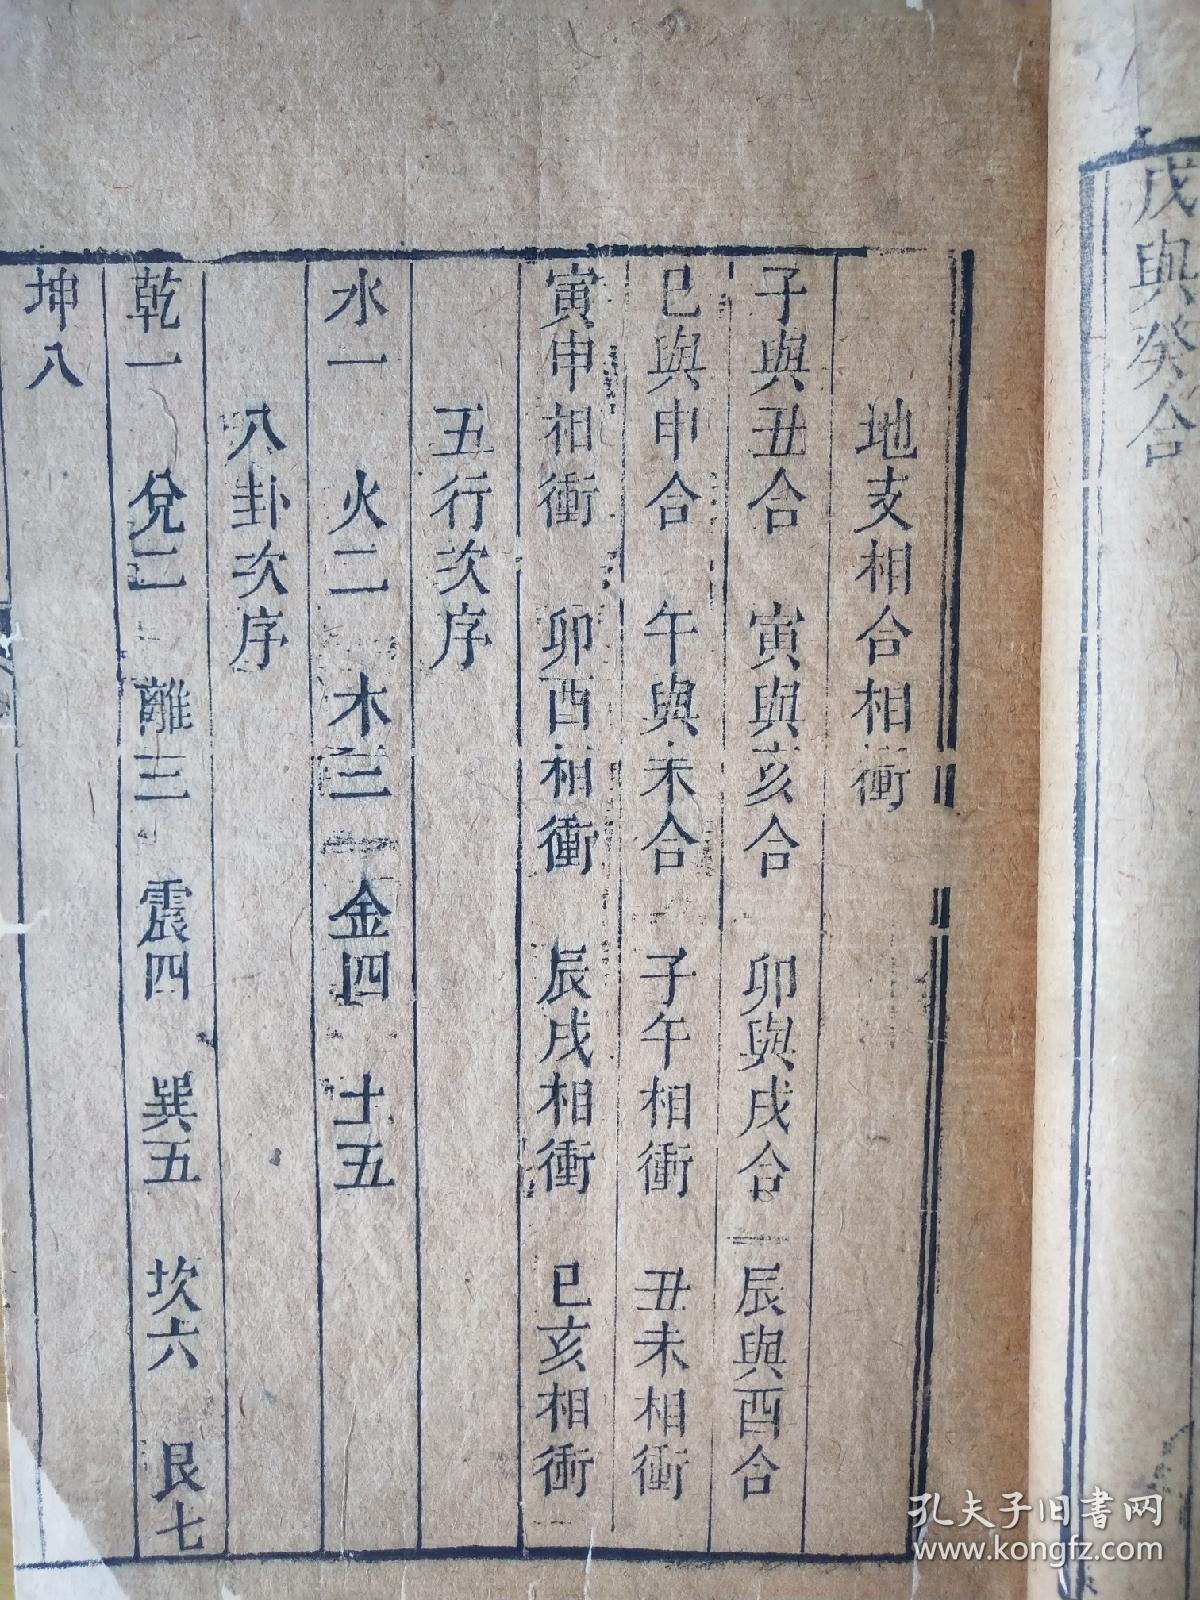 戊與癸合
地支相合相衝
子與丑合 寅與亥合 卯與戌合 辰與酉合
巳與申合 午與未合 子午相衝 丑未相衝
寅申相衝 卯酉相衝 辰戌相衝 巳亥相衝
五行次序
水一 火二 木三 金四 土五
八卦次序
乾一 兌二 離三 震四 巽五 坎六 艮七
坤八
孔夫子旧书网
www.kongfz.com